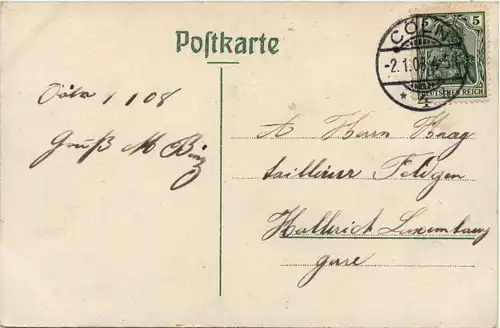 Postkarte
5
CÖLN
-2.1.08
* 4
DEUTSCHES REICH
Cöln 1 1 08
Gruß M
A Herrn Haag
tailleur Feldgen
Hollerich Luxemburg
gare